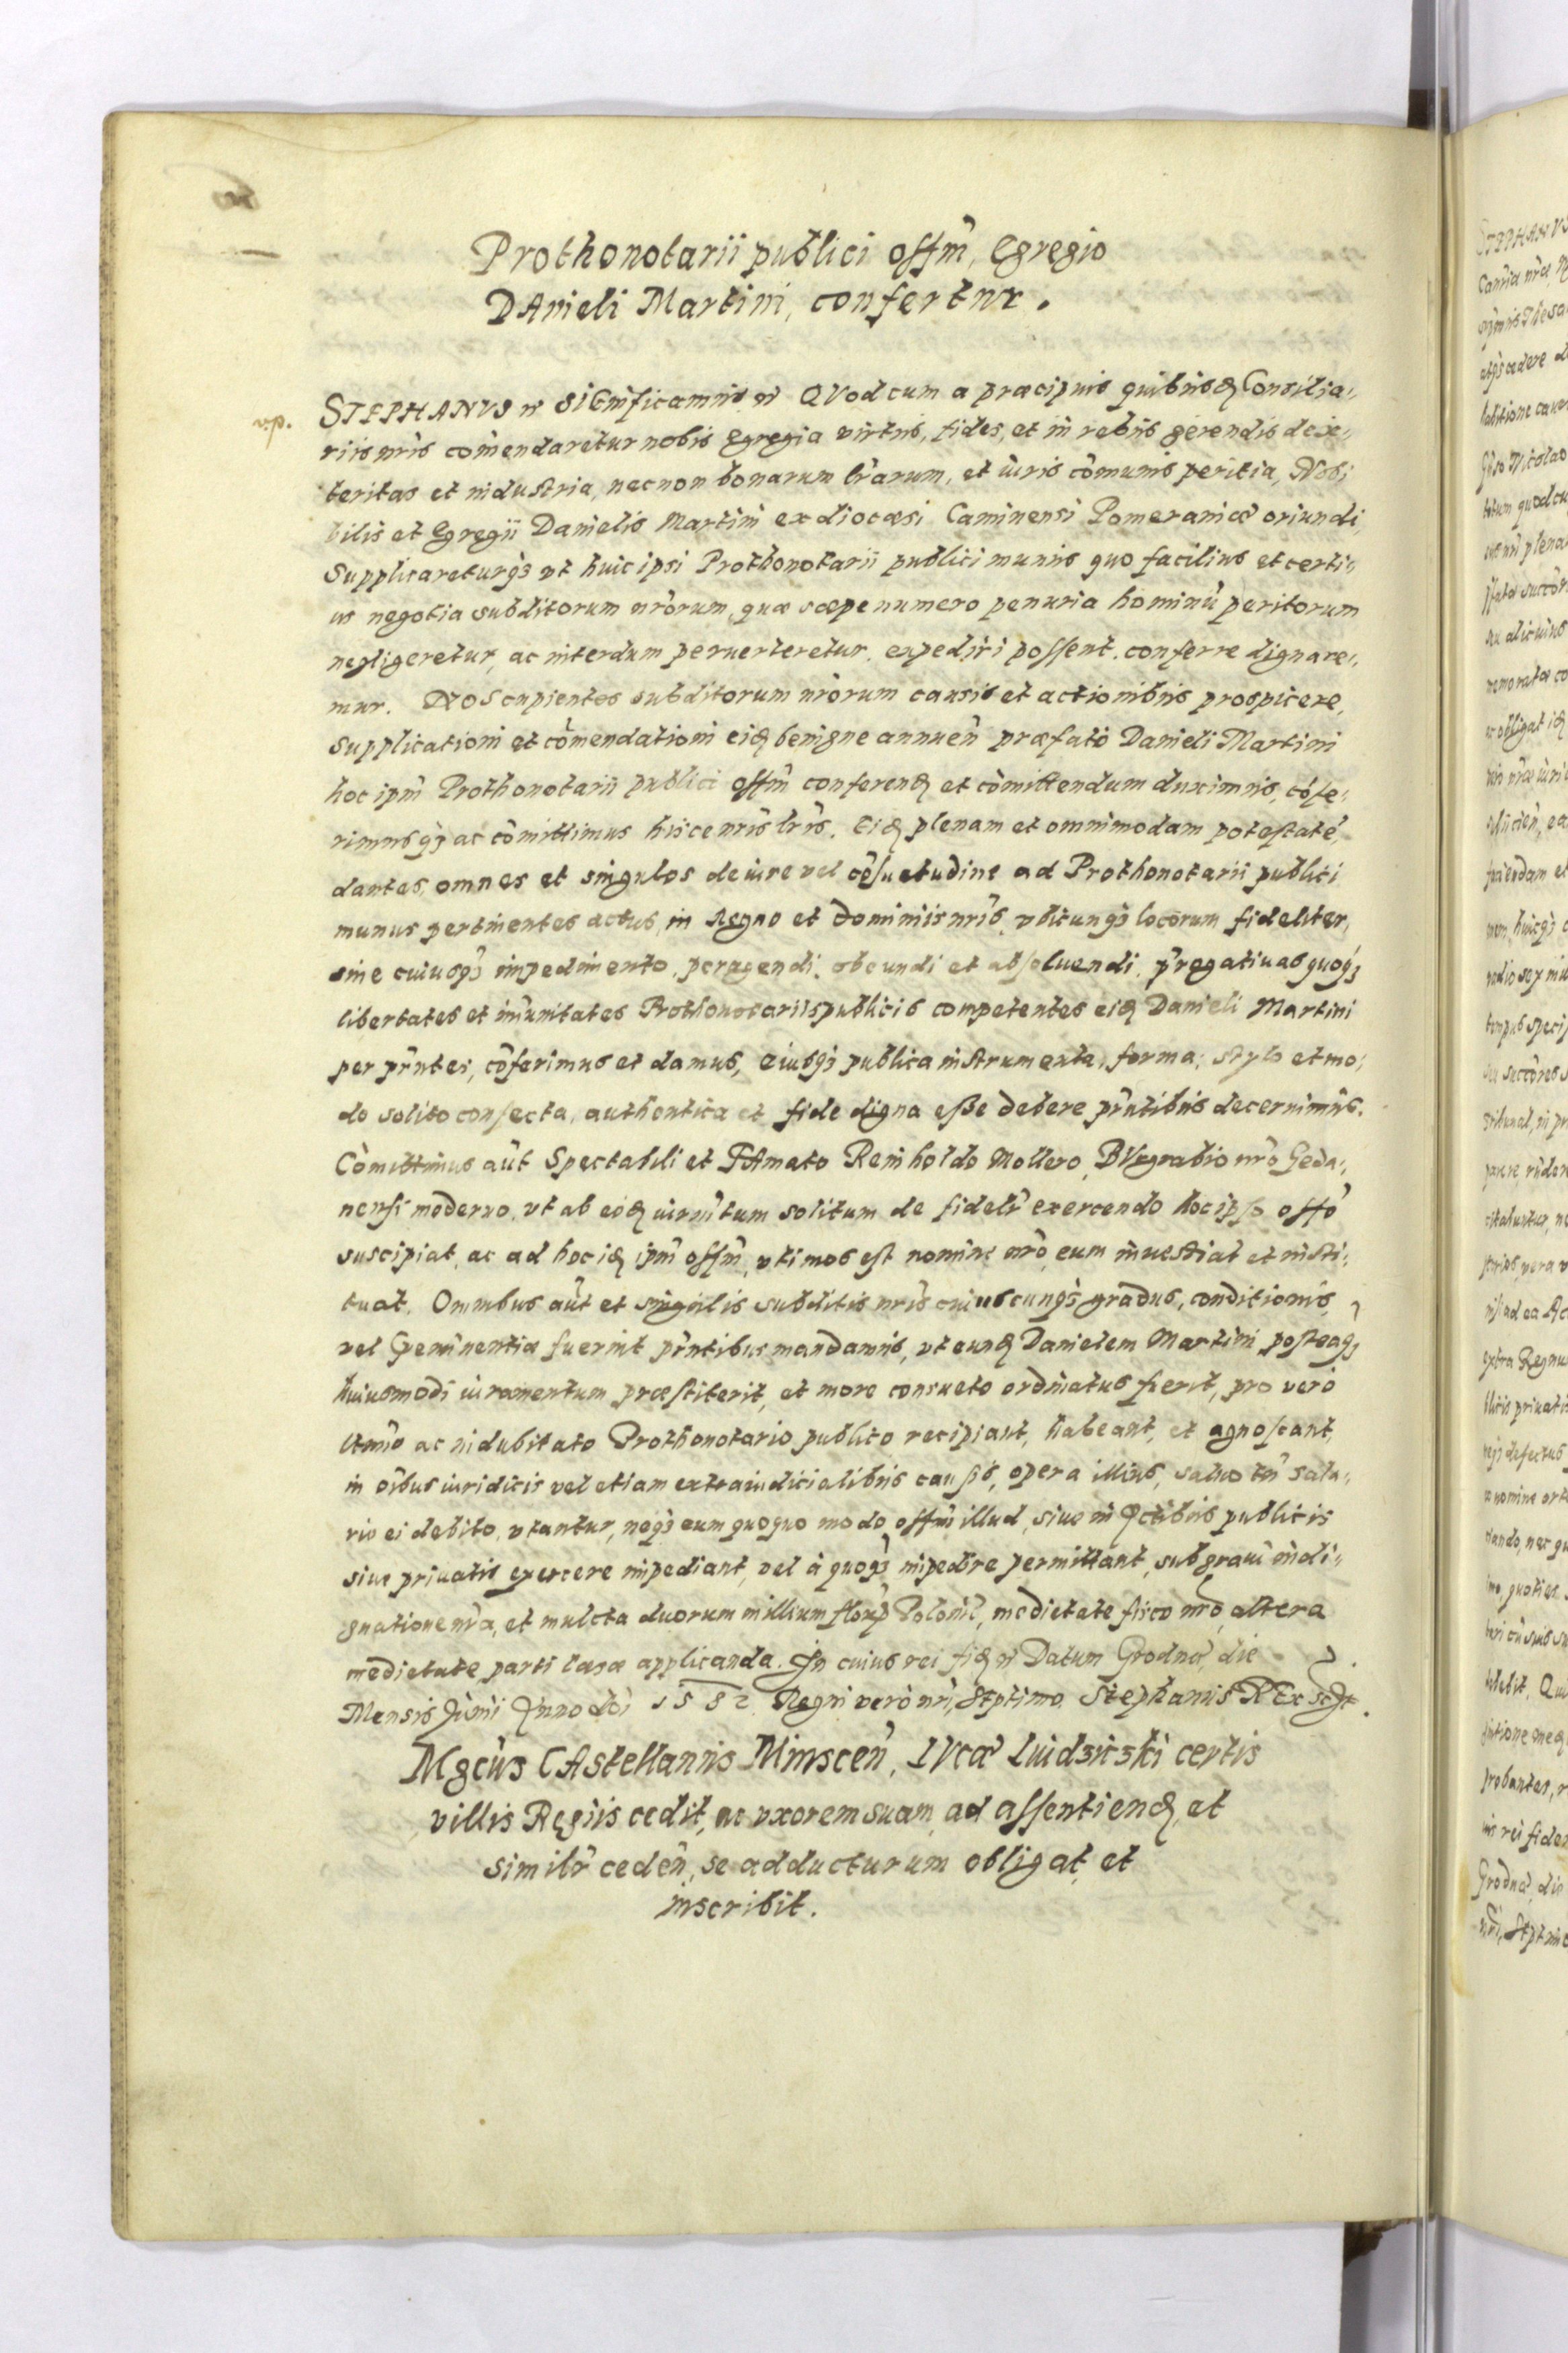 Prothonotarii publici offm̃, Egregio
DAnieli Martini, confertur.
vp.
STEPHANVS etc̃ SIGnificamus etc̃ QVod cum a præcipuis quibusđ Consilia-
riis nr̃is com̃endaretur nobis Egregia virtus, fides, et in rebus gerendis dexe-
teritas et industria, necnon bonarum lr̃arum, et iuris com̃unis peritia, Nobi
bilis et Egregii Danielis Martini ex diocæsi Caminensi Pomeraniæ oriundi,
Supplicareturq3 vt huic ipsi Prothonotarii publici munus quo facilius et certi-
us negotia subditorum nr̃orum, quæ sæpenumero penuria hominũ peritorum
negligeretur, ac interdum peruerteretur, expediri possent, conferre dignare-
mur. NOS cupientes subditorum nr̃orum causis et actionibus prospicere,
Supplicationi et com̃endationi eiđ benigne annueñ præfato Danieli Martini
hoc ipm̃ Prothonotarii publici offm̃ conferenđ et com̃ittendum duximus, cõfe-
rimusq3 ac com̃ittimus hisce nr̃is lr̃is. Eiđ plenam et omnimodam potestatẽ,
dantes omnes et singulos de iure vel cõsuetudine ad Prothonotarii publici
munus pertinentes actus, in Regno et Dominiis nr̃is, vbicunq3 locorum fideliter,
sine cuiusq3 impedimento, peragendi, obeundi et absoluendi, p̃rogatiuas quoq3
libertates et im̃unitates Prothonotariis publicis competentes eiđ Danieli Martini
per pñtes, cõferimus et damus, Eiusq3 publica instrumenta, forma, stylo et mo-
do solito confecta, authentica et fide digna eße debere pñtibus decernimus.
Com̃ittimus aũt Spectabili et FAmato Reinholdo Mollero, BVrgrabio nr̃o Geda-
nensi moderno, vt ab eođ iurm̃tum solitum de fidelr̃ exercendo hoc ipso offõ
suscipiat, ac ad hoc iđ ipm̃ offm̃, vti mos est nomine nr̃o, eum inuestiat et insti-
tuat. Omnibus aũt et singulis subditis nr̃is cuiuscunq3 gradus, conditionis,
vel p̃eminentiæ fuerint pñtibus mandamus, vt eunđ Danielem Martini posteaq3
huiusmodi iuramentum præstiterit, et more consueto ordinatus fuerit, pro vero
ltm̃o ac indubitato Prothonotario publico recipiant, habeant, et agnoscant,
in oĩbus iuridicis vel etiam extraiudicialibus causis, opera illius, saluo tñ sala-
rio ei debito, vtantur, neq3 eum quoquo modo offm̃ illud, siue in Actibus publicis
siue priuatis exercere impediant, vel à quoq3 impedire permittant, sub graui indi-
gnatione nr̃a, et mulcta duorum millium flor̃ Polonĩ, medietate fisco nr̃o, altera
medietate parti læsæ applicanda. In cuius rei fiđ etc̃ Datum Grodnæ, die
Mensis Junii Anno dñi 1582 Regni verò nr̃i, Septimo. Stephanus REx
Mgc̃us CAstellanus Minsceñ, LVcæ Luidziczki certis
villis Regiis cedit, ac vxorem suam, ad assentienđ, et
similr̃ cedeñ, se adducturum obligat, et
inscribit.